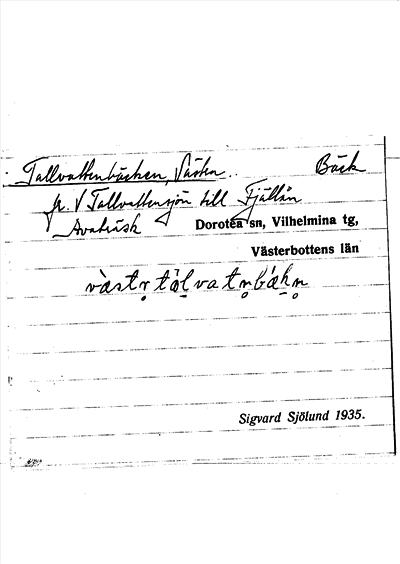 Tallvattenbäcken, Västra Bäck
fr. V Tallvattensjön till Fjällån
Avaträsk Dorotea sn, Vilhelmina tg,
Västerbottens län
Sigvard Sjölund 1935.